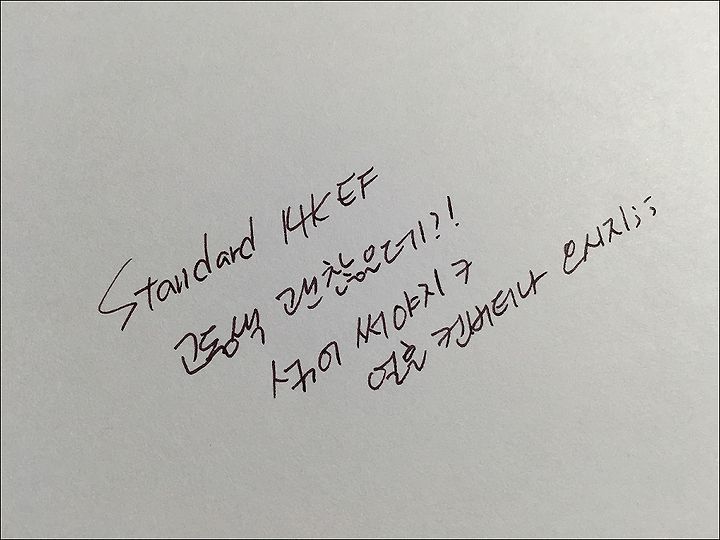 Standard 14K EF
고동색 괜찮은데?!
섞어 써야지 ㅋ
얼른 컨버터나 오시지;;